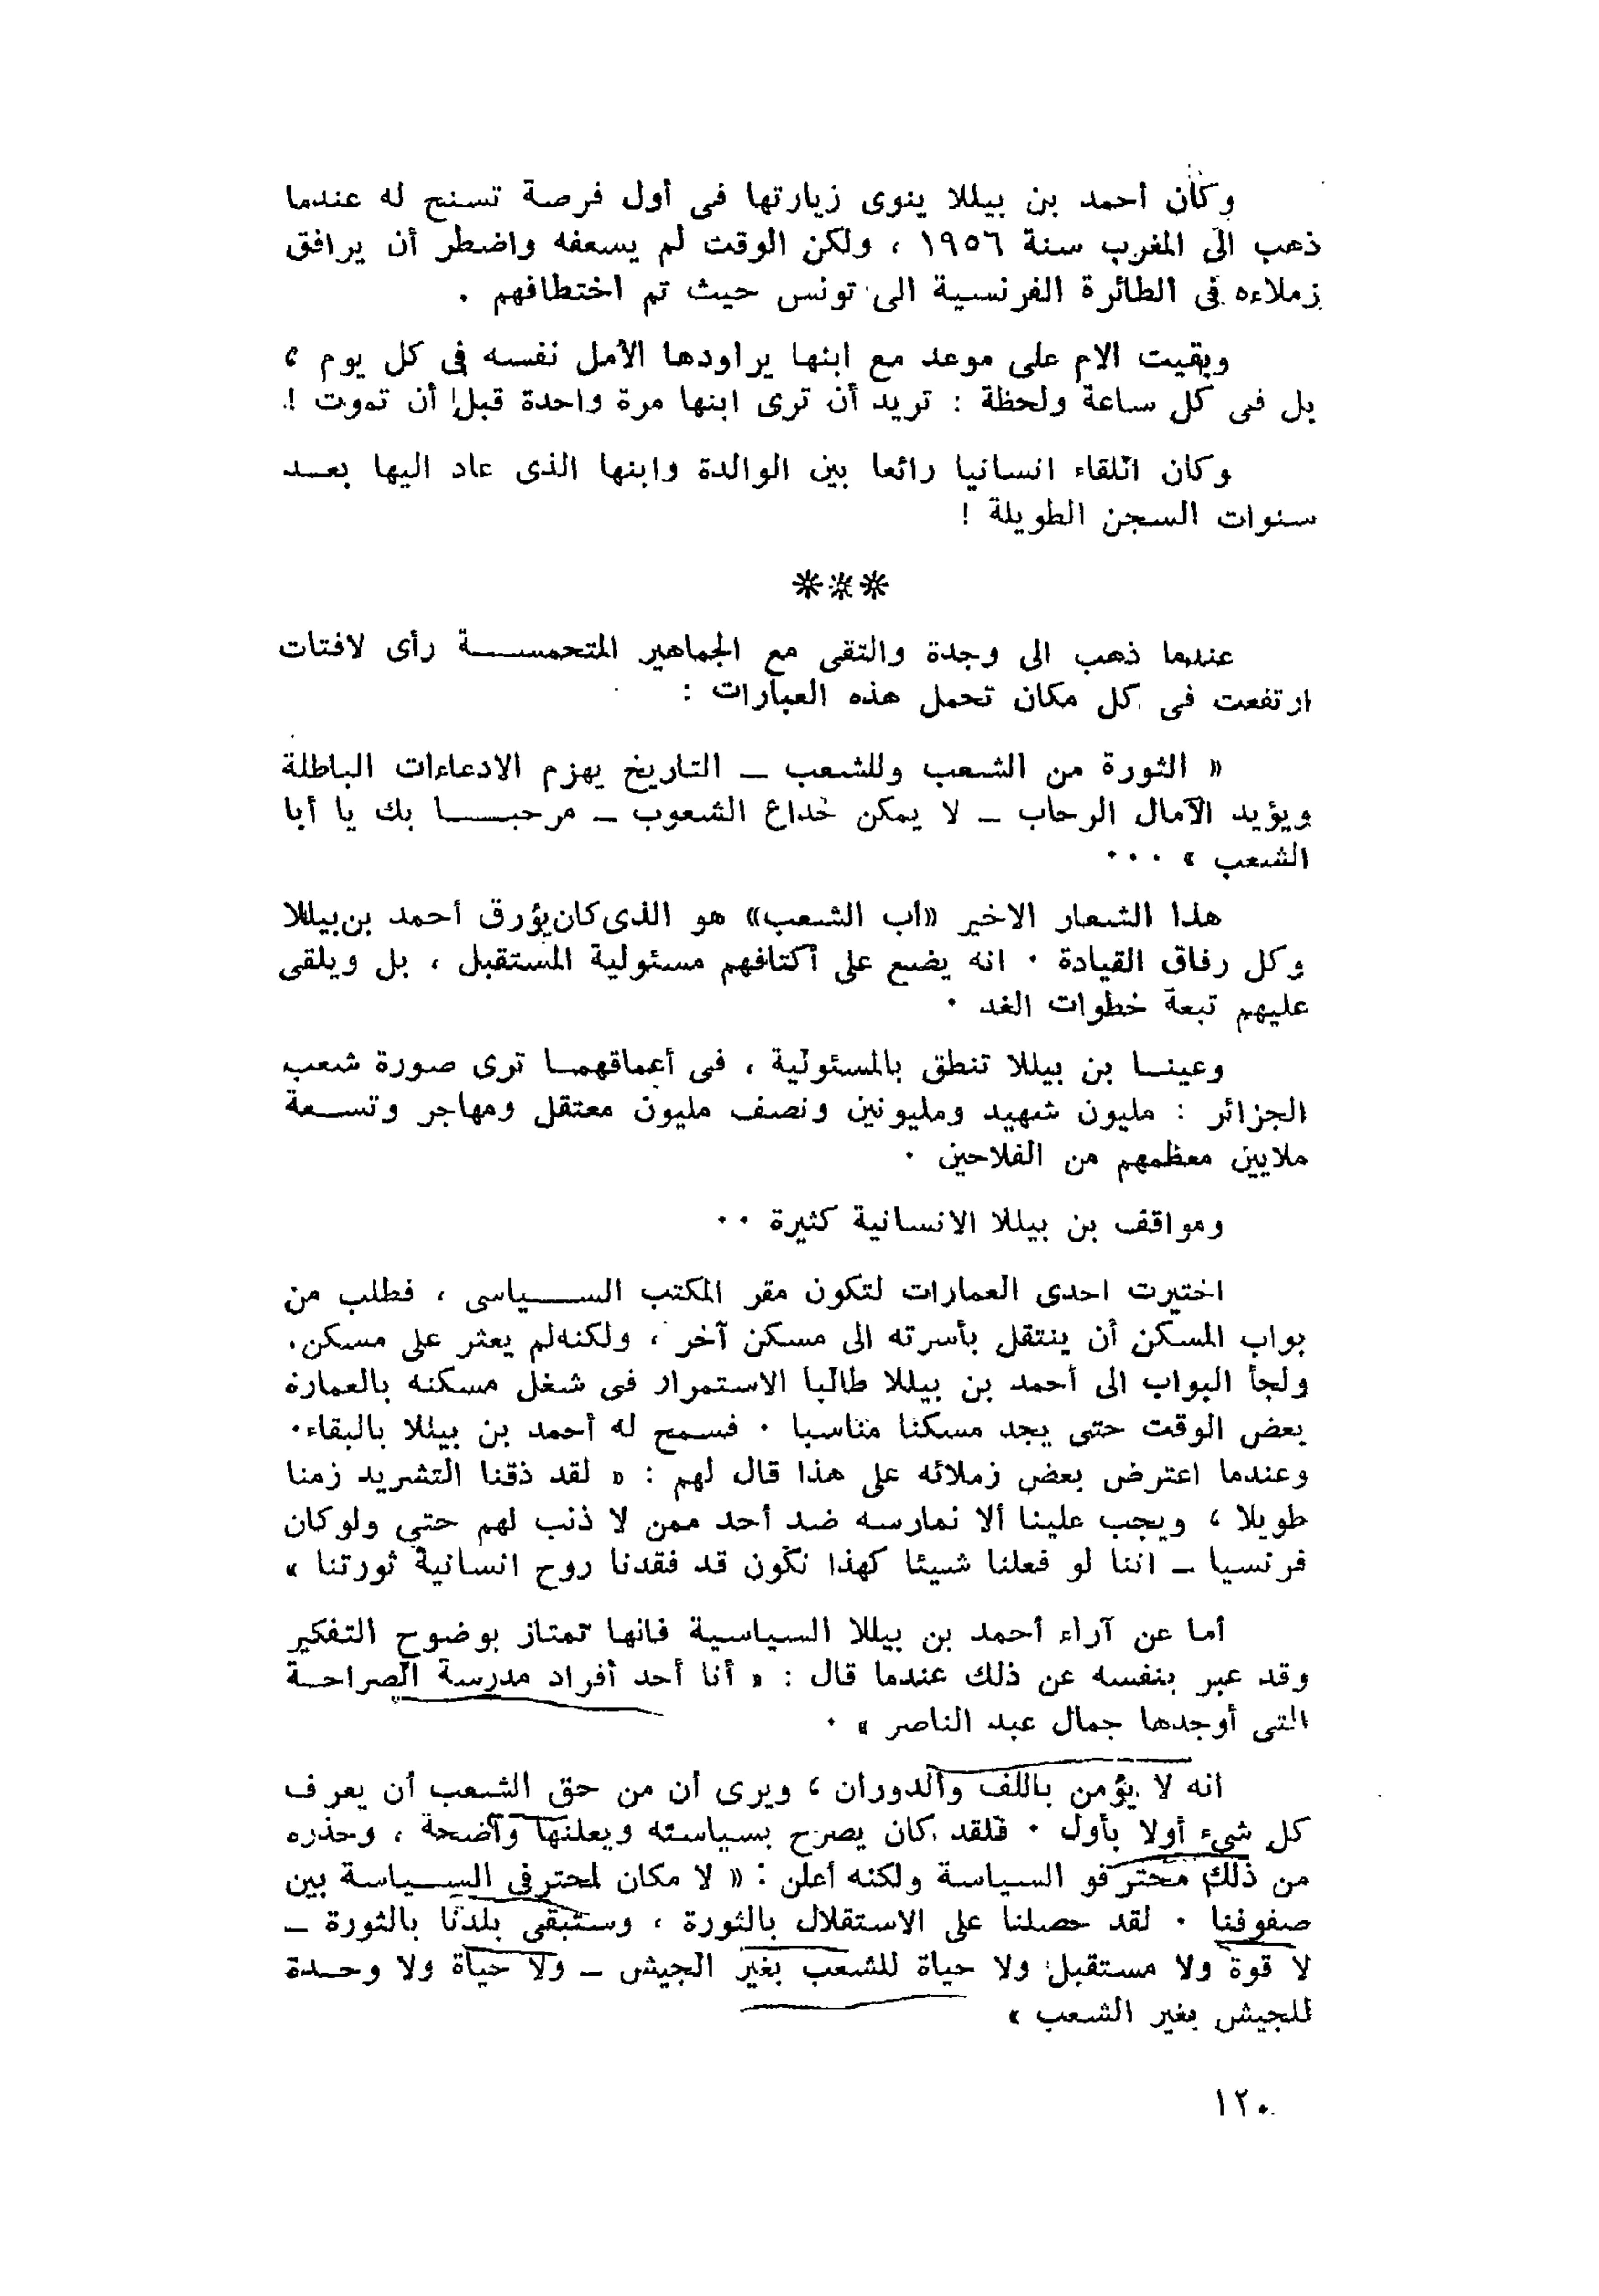 وكان أحمد بن بيللا ينوى زيارتها فى أول فرصة تسنح له عندما
ذهب الى المغرب سنة ١٩٥٦ ، ولكن الوقت لم يسعفه واضطر أن يرافق
زملاءه فى الطائرة الفرنسية الى تونس حيث تم اختطافهم .
وبقيت الام على موعد مع ابنها يراودها الأمل نفسه فى كل يوم ،
بل فى كل ساعة ولحظة : تريد أن ترى ابنها مرة واحدة قبل أن تموت !
وكان اللقاء انسانيا رائعا بين الوالدة وابنها الذى عاد اليها بعــد
سنوات السجن الطويلة !
***
عندما ذهب الى وجدة والتقى مع الجماهير المتحمســـة رأى لافتات
ارتفعت فى كل مكان تحمل هذه العبارات :
« الثورة من الشعب وللشعب ــ التاريخ يهزم الادعاءات الباطلة
ويؤيد الآمال الرحاب ــ لا يمكن خداع الشعوب ــ مرحبــــا بك يا أبا
الشعب » ...
هذا الشعار الاخير «أب الشعب» هو الذى كان يؤرق أحمد بن بيللا
وكل رفاق القيادة . انه يضع على أكتافهم مسئولية المستقبل ، بل ويلقى
عليهم تبعة خطوات الغد .
وعينــا بن بيللا تنطق بالمسئولية ، فى أعماقهمــا ترى صورة شعب
الجزائر : مليون شهيد ومليونين ونصف مليون معتقل ومهاجر وتســعة
ملايين معظمهم من الفلاحين .
ومواقف بن بيللا الانسانية كثيرة ..
اختيرت احدى العمارات لتكون مقر المكتب الســـياسى ، فطلب من
بواب المسكن أن ينتقل بأسرته الى مسكن آخر ، ولكنه لم يعثر على مسكن.
ولجأ البواب الى أحمد بن بيللا طالبا الاستمرار فى شغل مسكنه بالعمارة
بعض الوقت حتى يجد مسكنا مناسبا . فسمح له أحمد بن بيللا بالبقاء.
وعندما اعترض بعض زملائه على هذا قال لهم : « لقد ذقنا التشريد زمنا
طويلا ، ويجب علينا ألا نمارسه ضد أحد ممن لا ذنب لهم حتى ولو كان
فرنسيا ــ اننا لو فعلنا شيئا كهذا نكون قد فقدنا روح انسانية ثورتنا »
أما عن آراء أحمد بن بيللا السياسية فانها تمتاز بوضوح التفكير
وقد عبر بنفسه عن ذلك عندما قال : « أنا أحد أفراد مدرسة الصراحــة
التى أوجدها جمال عبد الناصر » .
انه لا يؤمن باللف والدوران ، ويرى أن من حق الشعب أن يعرف
كل شىء أولا بأول . فلقد كان يصرح بسياسته ويعلنها واضحة ، وحذره
من ذلك محترفو السياسة ولكنه أعلن : « لا مكان لمحترفى الســياسة بين
صفوفنا . لقد حصلنا على الاستقلال بالثورة ، وستبقى بلدنا بالثورة ــ
لا قوة ولا مستقبل ولا حياة للشعب بغير الجيش ــ ولا حياة ولا وحــدة
للجيش بغير الشعب »
١٢٠